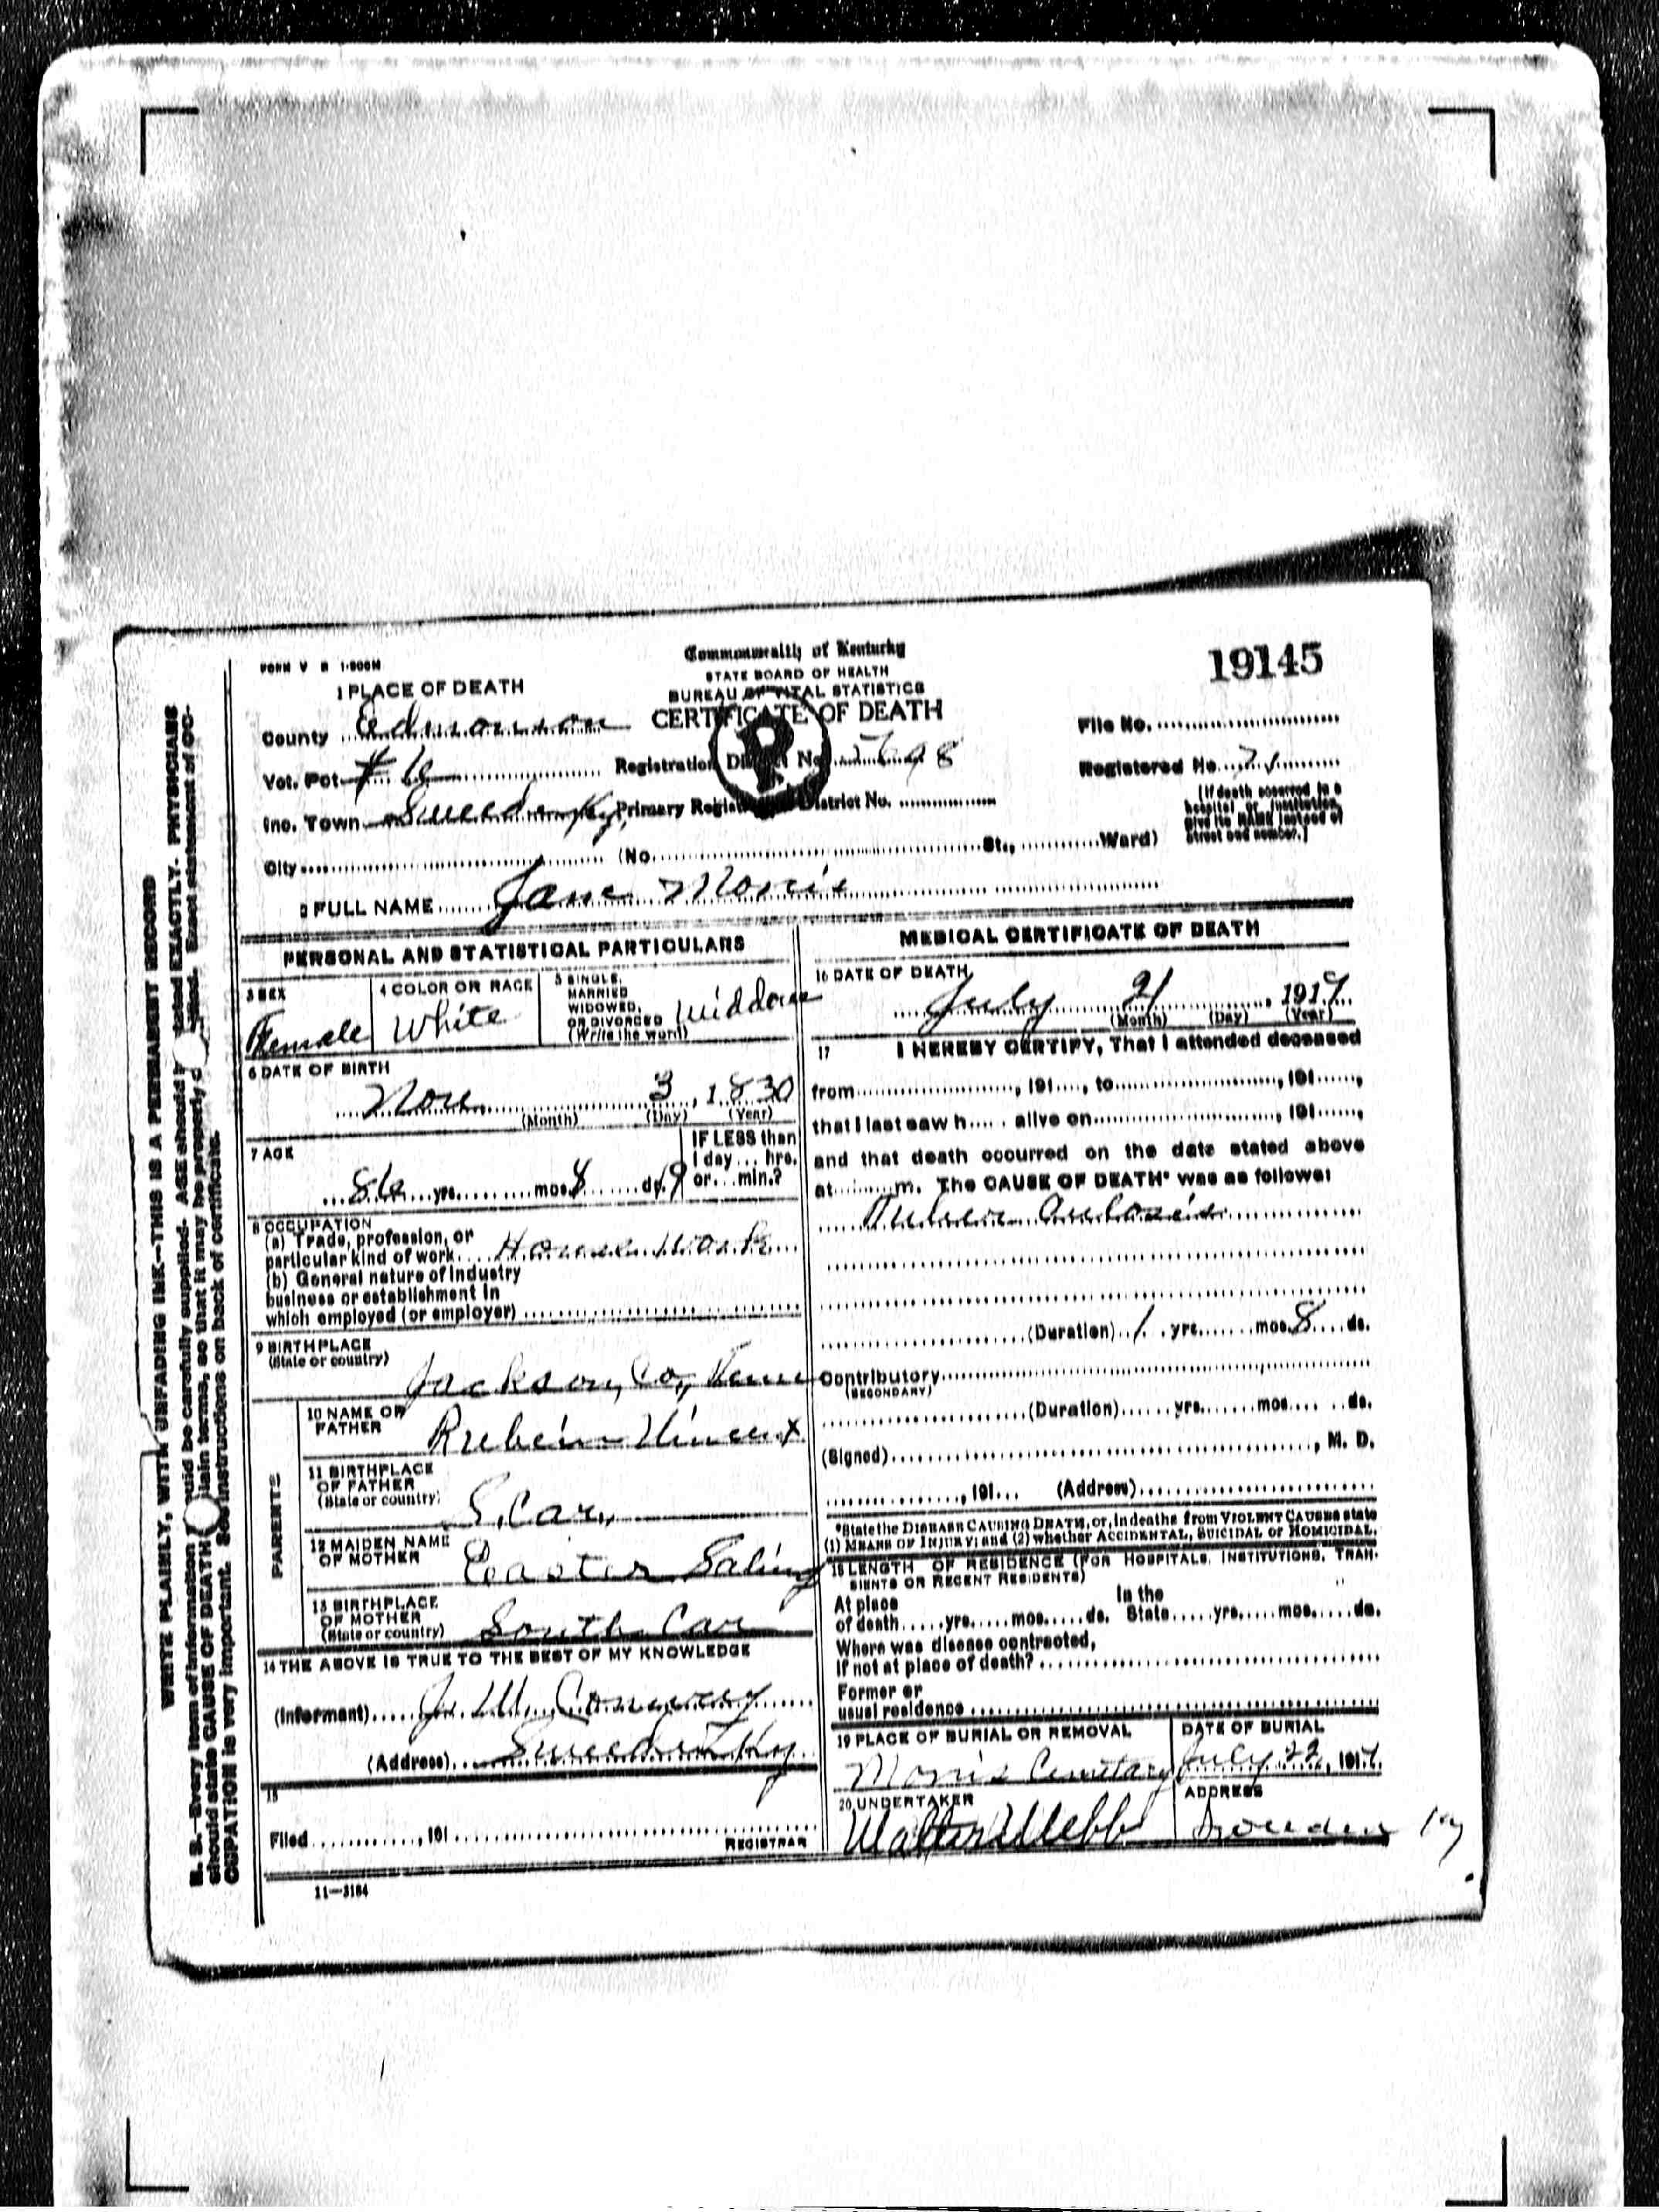 WRITE PLAINLY, WITH UNFADING INK—THIS IS A PERMANENT RECORD
N. B.—Every item of information should be carefully supplied. AGE should be stated EXACTLY. PHYSICIANS
should state CAUSE OF DEATH in plain terms, so that it may be properly classified. Exact statement of OC-
CUPATION is very important. See instructions on back of certificate.
FORM V
Commonwealth of Kentucky
STATE BOARD OF HEALTH
BUREAU OF VITAL STATISTICS
CERTIFICATE OF DEATH
19145
1 PLACE OF DEATH
County Edmonson
File No.
Vot. Pct
Registration District No.
Registered No.
Inc. Town Sweeden Ky,
Primary Registration District No.
P
[If death occurred in a
hospital or institution,
give its NAME instead of
street and number.]
City (No. St., Ward)
2 FULL NAME Jane Morris
PERSONAL AND STATISTICAL PARTICULARS
3 SEX
Female
4 COLOR OR RACE
White
5 SINGLE,
MARRIED
WIDOWED,
OR DIVORCED
(Write the word)
6 DATE OF BIRTH
Nov 3, 1830
(Month) (Day) (Year)
7 AGE
86 yrs. mos. 8 ds.
IF LESS than
1 day... hrs.
or... min.?
8 OCCUPATION
(a) Trade, profession, or
particular kind of work House Work
(b) General nature of industry
business or establishment in
which employed (or employer)
9 BIRTHPLACE
(State or country)
Jackson, Co, Tenn
PARENTS
10 NAME OF
FATHER
11 BIRTHPLACE
OF FATHER
(State or country)
S. Car,
12 MAIDEN NAME
OF MOTHER
13 BIRTHPLACE
OF MOTHER
(State or country)
South Car
14 THE ABOVE IS TRUE TO THE BEST OF MY KNOWLEDGE
(Informant)
(Address) Sweeden Ky
15
Filed, 191
REGISTRAR
11—3184
MEDICAL CERTIFICATE OF DEATH
16 DATE OF DEATH
July 21, 1917
(Month) (Day) (Year)
17 I HEREBY CERTIFY, That I attended deceased
from, 191, to, 191,
that I last saw h alive on, 191,
and that death occurred on the date stated above
at m. The CAUSE OF DEATH* was as follows:
(Duration) 1 yrs. mos. 8 ds.
Contributory
(SECONDARY)
(Duration) yrs. mos. ds.
(Signed), M. D.
, 191 (Address)
*State the DISEASE CAUSING DEATH, or, in deaths from VIOLENT CAUSES state
(1) MEANS OF INJURY; and (2) whether ACCIDENTAL, SUICIDAL or HOMICIDAL.
18 LENGTH OF RESIDENCE (FOR HOSPITALS, INSTITUTIONS, TRAN-
SIENTS OR RECENT RESIDENTS)
At place
of death yrs. mos. ds.
In the
State yrs. mos. ds.
Where was disease contracted,
If not at place of death?
Former or
usual residence
19 PLACE OF BURIAL OR REMOVAL
Morris Cemetary
DATE OF BURIAL
July 22, 1917.
20 UNDERTAKER
Walter Webb
ADDRESS
Ky